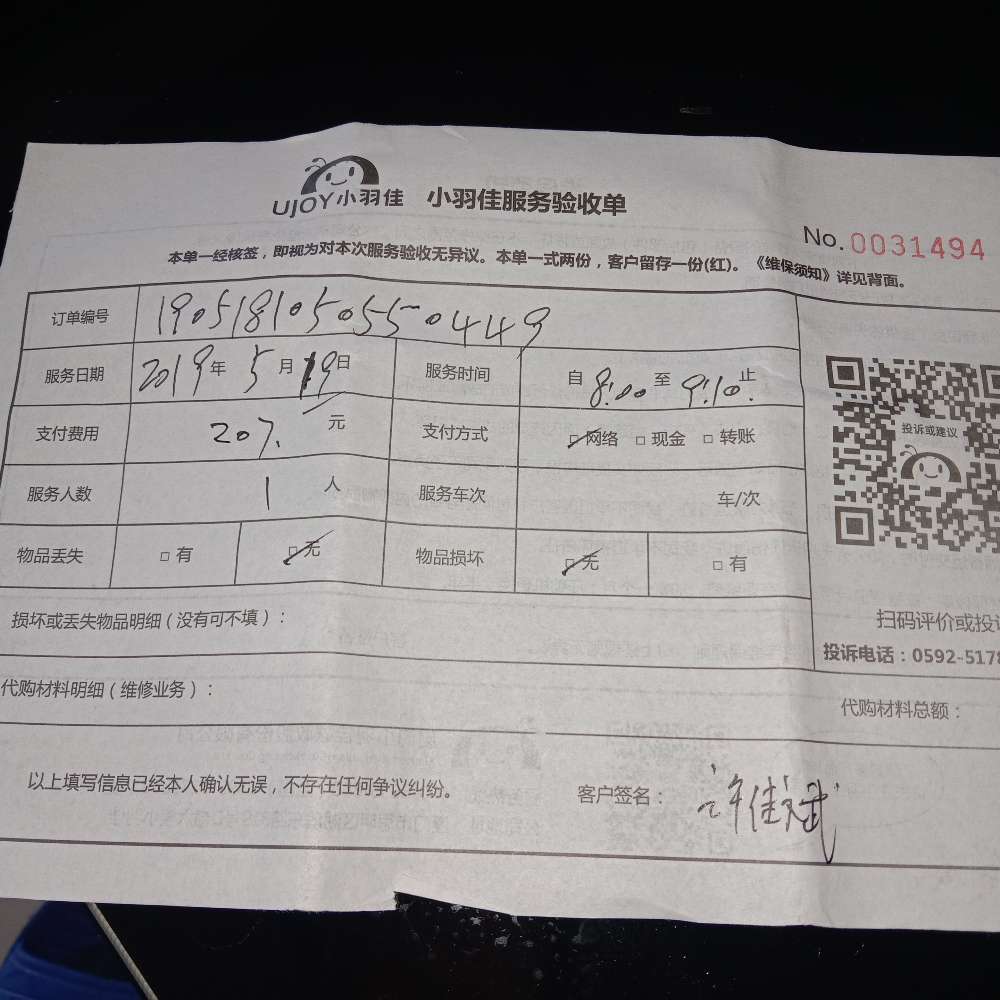 UJOY小羽佳 小羽佳服务验收单
No. 0031494
本单一经核签，即视为对本次服务验收无异议。本单一式两份，客户留存一份(红)。《维保须知》详见背面。
订单编号 1905181050550449
服务日期 2019年5月19日 服务时间 自8:00至9:10止
支付费用 207. 元 支付方式 □网络 □现金 □转账
投诉或建议
服务人数 1 人 服务车次 车/次
物品丢失 □有 □无 物品损坏 □无 □有
损坏或丢失物品明细（没有可不填）：
扫码评价或投
投诉电话：0592-5178
代购材料明细（维修业务）：
代购材料总额：
以上填写信息已经本人确认无误，不存在任何争议纠纷。 客户签名：许佳斌